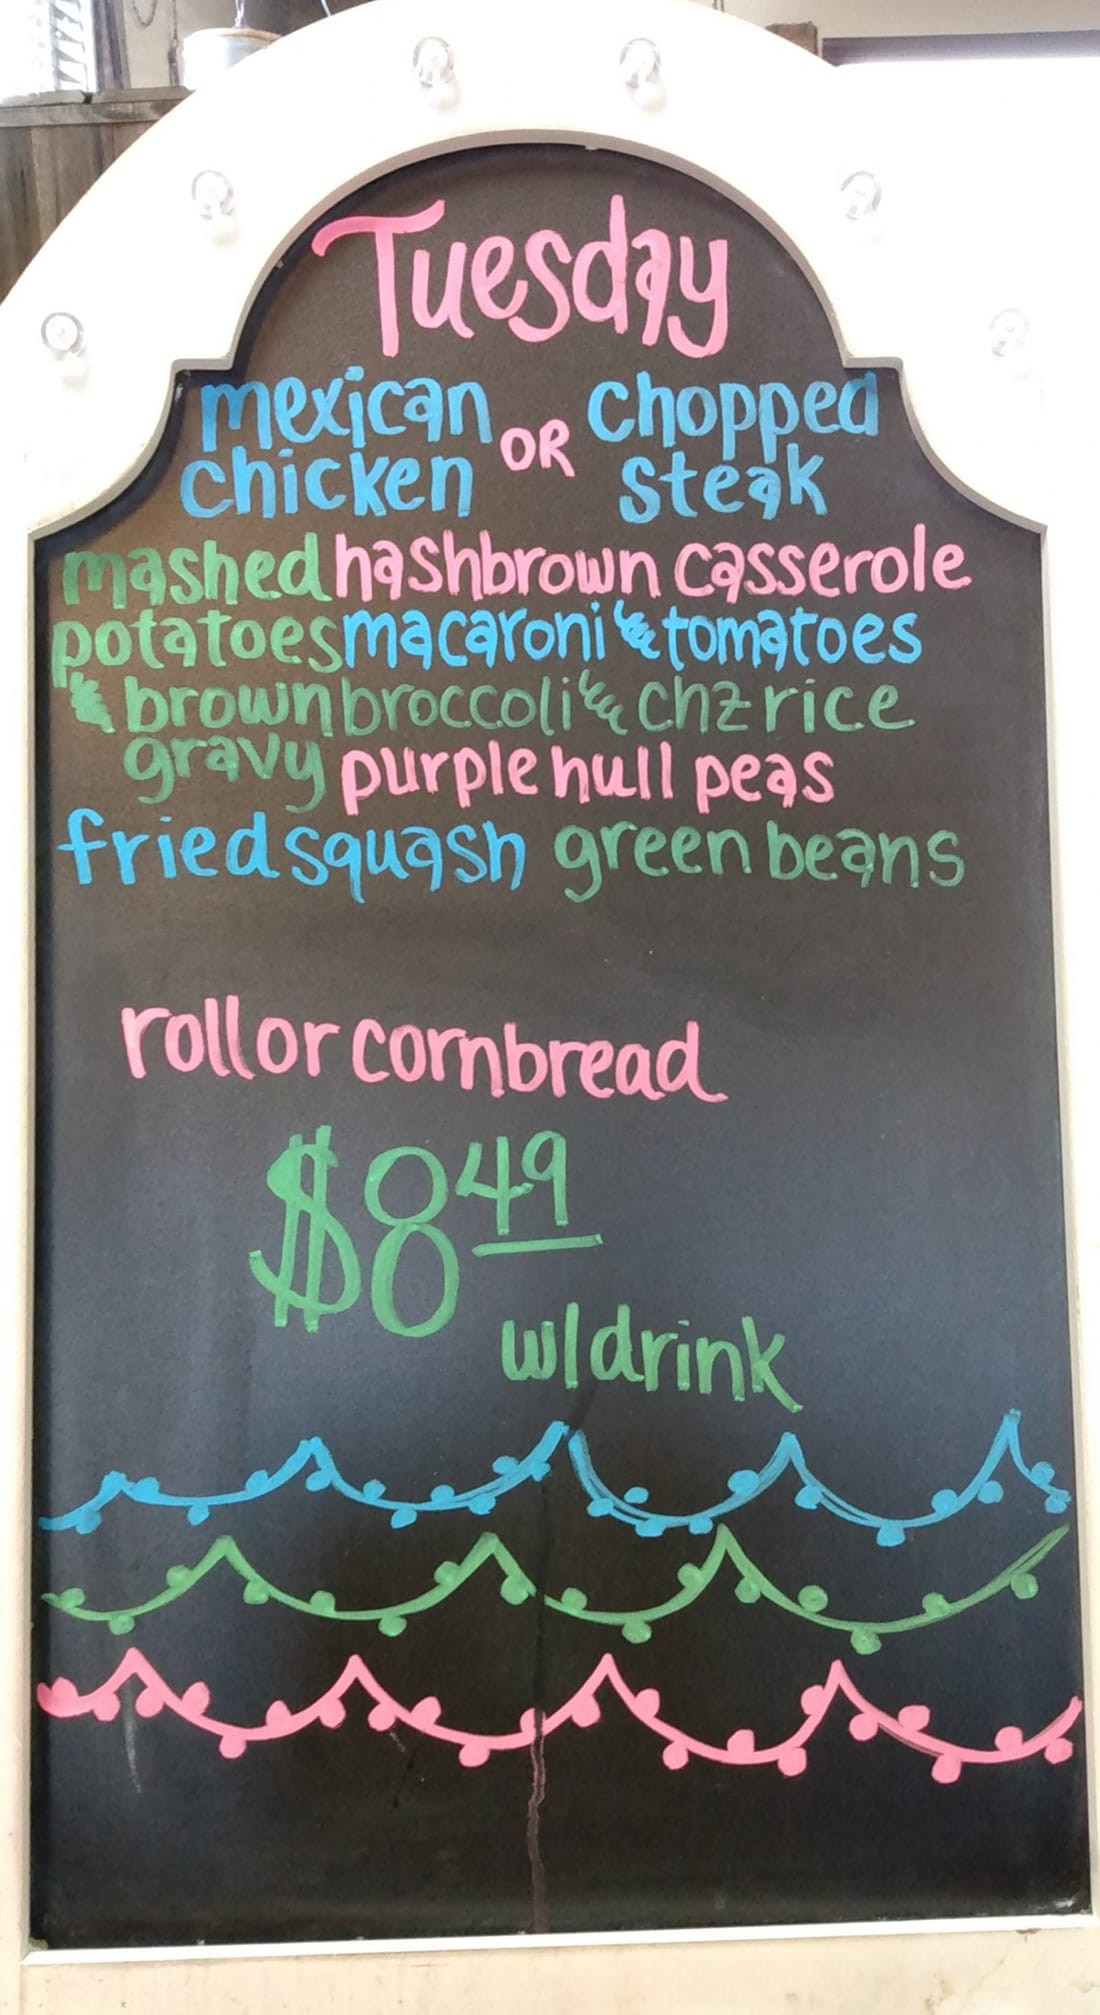 Tuesday
mexican chicken OR chopped steak
mashed potatoes & brown gravy
hashbrown casserole
macaroni & tomatoes
broccoli & chz rice
purple hull peas
fried squash green beans
roll or cornbread
$8 49
w/drink